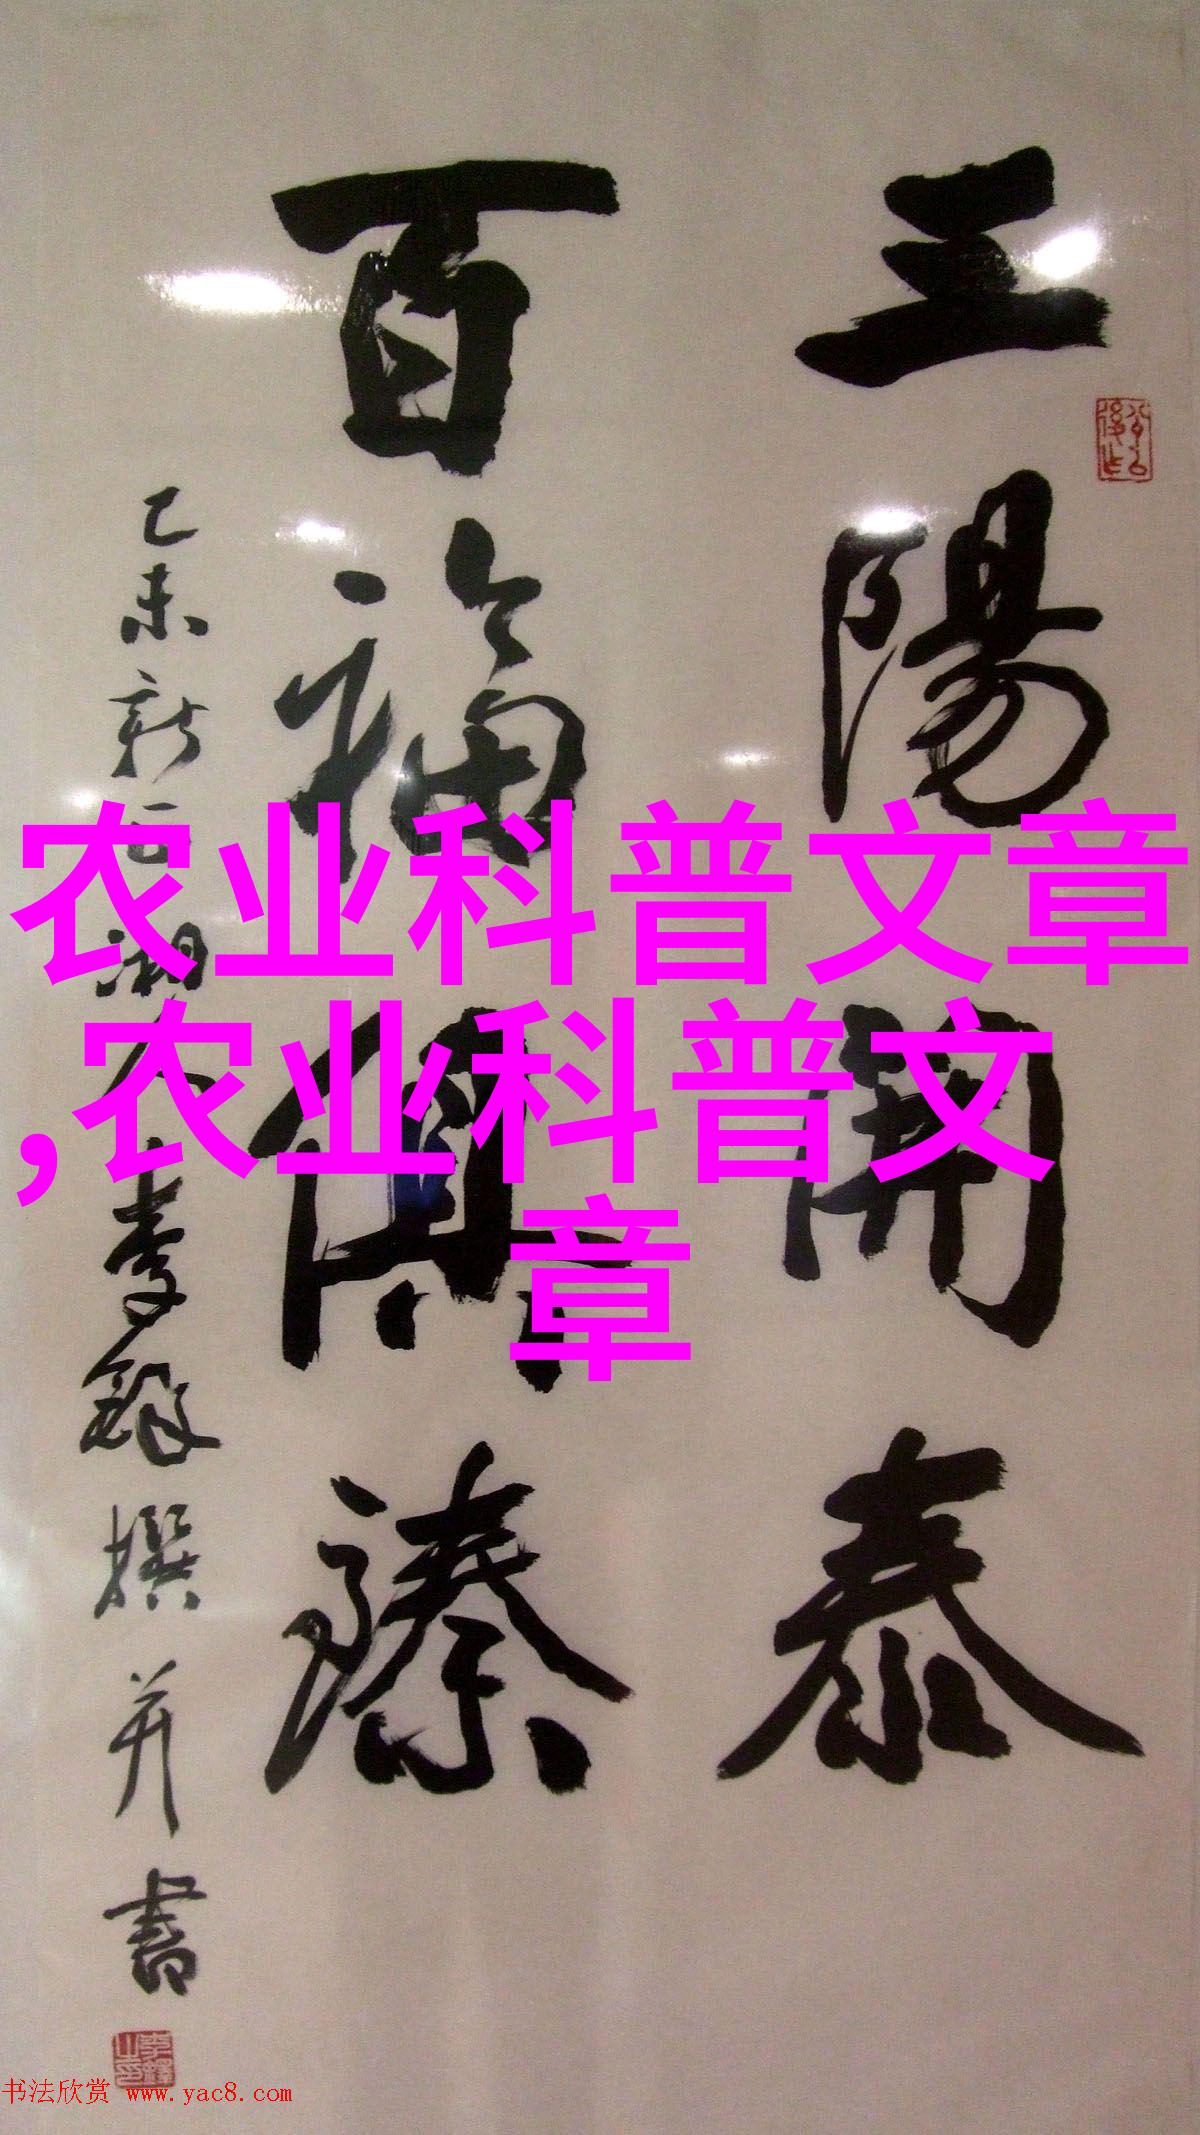 三陽開泰
百福俱臻
乙未新正湘人李鐸撰并書
農业科普文章
,农业科普文
章
书法欣赏 www.yac8.com